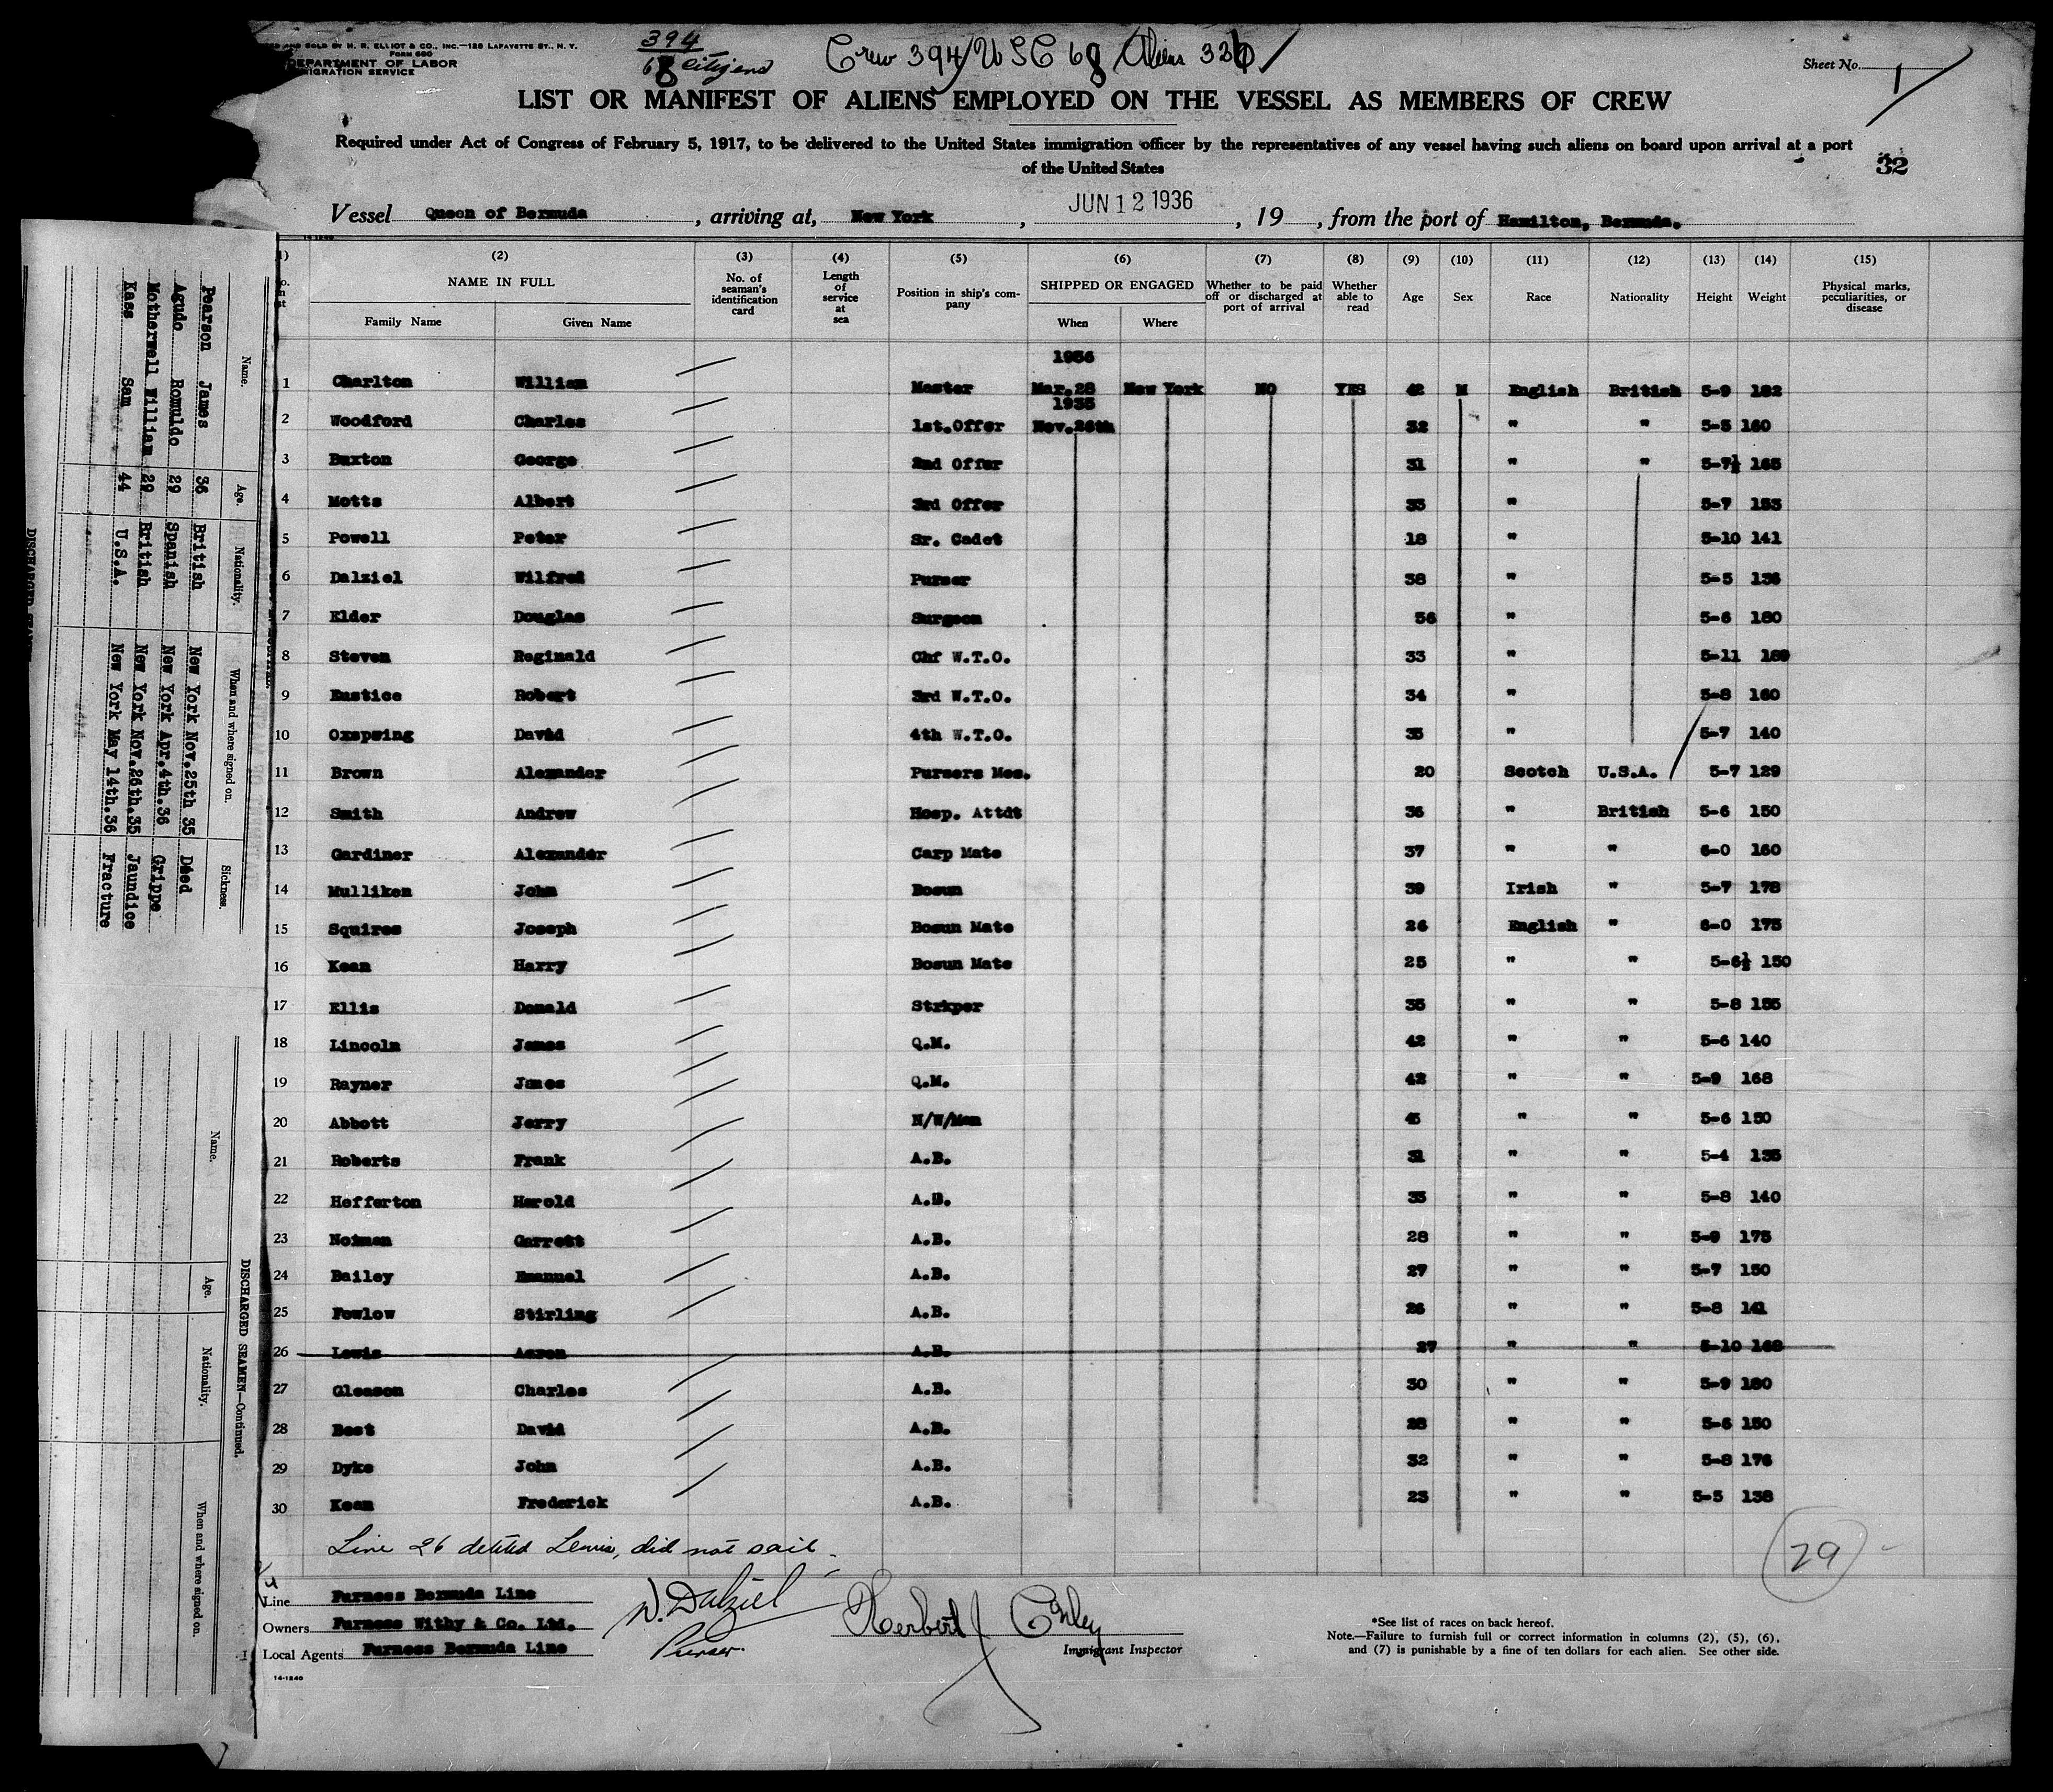 AND SOLD BY H. R. ELLIOT & CO., INC.—129 LAFAYETTE ST., N. Y.
FORM 680
DEPARTMENT OF LABOR
IMMIGRATION SERVICE
394
68 citizens
Crew 394/ USC 68 Aliens 326/
Sheet No. 1
LIST OR MANIFEST OF ALIENS EMPLOYED ON THE VESSEL AS MEMBERS OF CREW
Required under Act of Congress of February 5, 1917, to be delivered to the United States immigration officer by the representatives of any vessel having such aliens on board upon arrival at a port
of the United States
32
Vessel Queen of Bermuda, arriving at, New York, JUN 12 1936, 19, from the port of Hamilton, Bermuda.
14-1240
(2) (3) (4) (5) (6) (7) (8) (9) (10) (11) (12) (13) (14) (15)
NAME IN FULL No. of seaman's identification card Length of service at sea Position in ship's company SHIPPED OR ENGAGED Whether to be paid off or discharged at port of arrival Whether able to read Age Sex Race Nationality Height Weight Physical marks, peculiarities, or disease
Family Name Given Name When Where
1936
1 Charlton William Master Mar.28 New York NO YES 42 M English British 5-9 182
1935
2 Woodford Charles 1st.Offer Nov.26th 32 " " 5-5 160
3 Buxton George 2nd Offer 31 " " 5-7½ 165
4 Motts Albert 3rd Offer 33 " 5-7 153
5 Powell Peter Sr. Cadet 18 " 5-10 141
6 Dalziel Wilfred Purser 38 " 5-5 136
7 Elder Douglas Surgeon 56 " 5-6 180
8 Steven Reginald Chf W.T.O. 33 " 5-11 189
9 Eustice Robert 3rd W.T.O. 34 " 5-8 160
10 Oxspring David 4th W.T.O. 35 " 5-7 140
11 Brown Alexander Pursers Mes. 20 Scotch U.S.A. 5-7 129
12 Smith Andrew Hosp. Attdt 36 " British 5-6 150
13 Gardiner Alexander Carp Mate 37 " " 6-0 160
14 Mulliken John Bosun 39 Irish " 5-7 178
15 Squires Joseph Bosun Mate 26 English " 6-0 175
16 Kean Harry Bosun Mate 25 " " 5-6½ 150
17 Ellis Donald Strkper 35 " " 5-8 155
18 Lincoln James Q.M. 42 " " 5-6 140
19 Rayner James Q.M. 42 " " 5-9 168
20 Abbott Jerry N/W/Man 45 " " 5-6 150
21 Roberts Frank A.B. 31 " " 5-4 135
22 Hefferton Harold A.B. 35 " " 5-8 140
23 Noiman Garrett A.B. 28 " " 5-9 175
24 Bailey Emanuel A.B. 27 " " 5-7 150
25 Fowlow Stirling A.B. 26 " " 5-8 141
26 Lewis Aaron A.B. 27 " " 5-10 168
27 Gleason Charles A.B. 30 " " 5-9 180
28 Best David A.B. 28 " " 5-6 150
29 Dyke John A.B. 32 " " 5-8 176
30 Kean Frederick A.B. 23 " " 5-5 138
Line 26 deleted Lewis, did not sail.
29
Line Furness Bermuda Line
Owners Furness Withy & Co. Ltd.
Local Agents Furness Bermuda Line
14-1240
W. Dalziel
Purser.
Herbert J Conley
Immigrant Inspector
*See list of races on back hereof.
Note.—Failure to furnish full or correct information in columns (2), (5), (6),
and (7) is punishable by a fine of ten dollars for each alien. See other side.
Name. Age. Nationality. When and where signed on. Sickness.
Pearson James 36 British New York Nov.25th 35 Died
Agudo Romuldo 29 Spanish New York Apr.4th.36 Grippe
Motherwell William 29 British New York Nov.26th.35 Jaundice
Kass Sam 44 U.S.A. New York May 14th.36 Fracture
DISCHARGED SEAMEN—Continued.
Name. Age. Nationality. When and where signed on.